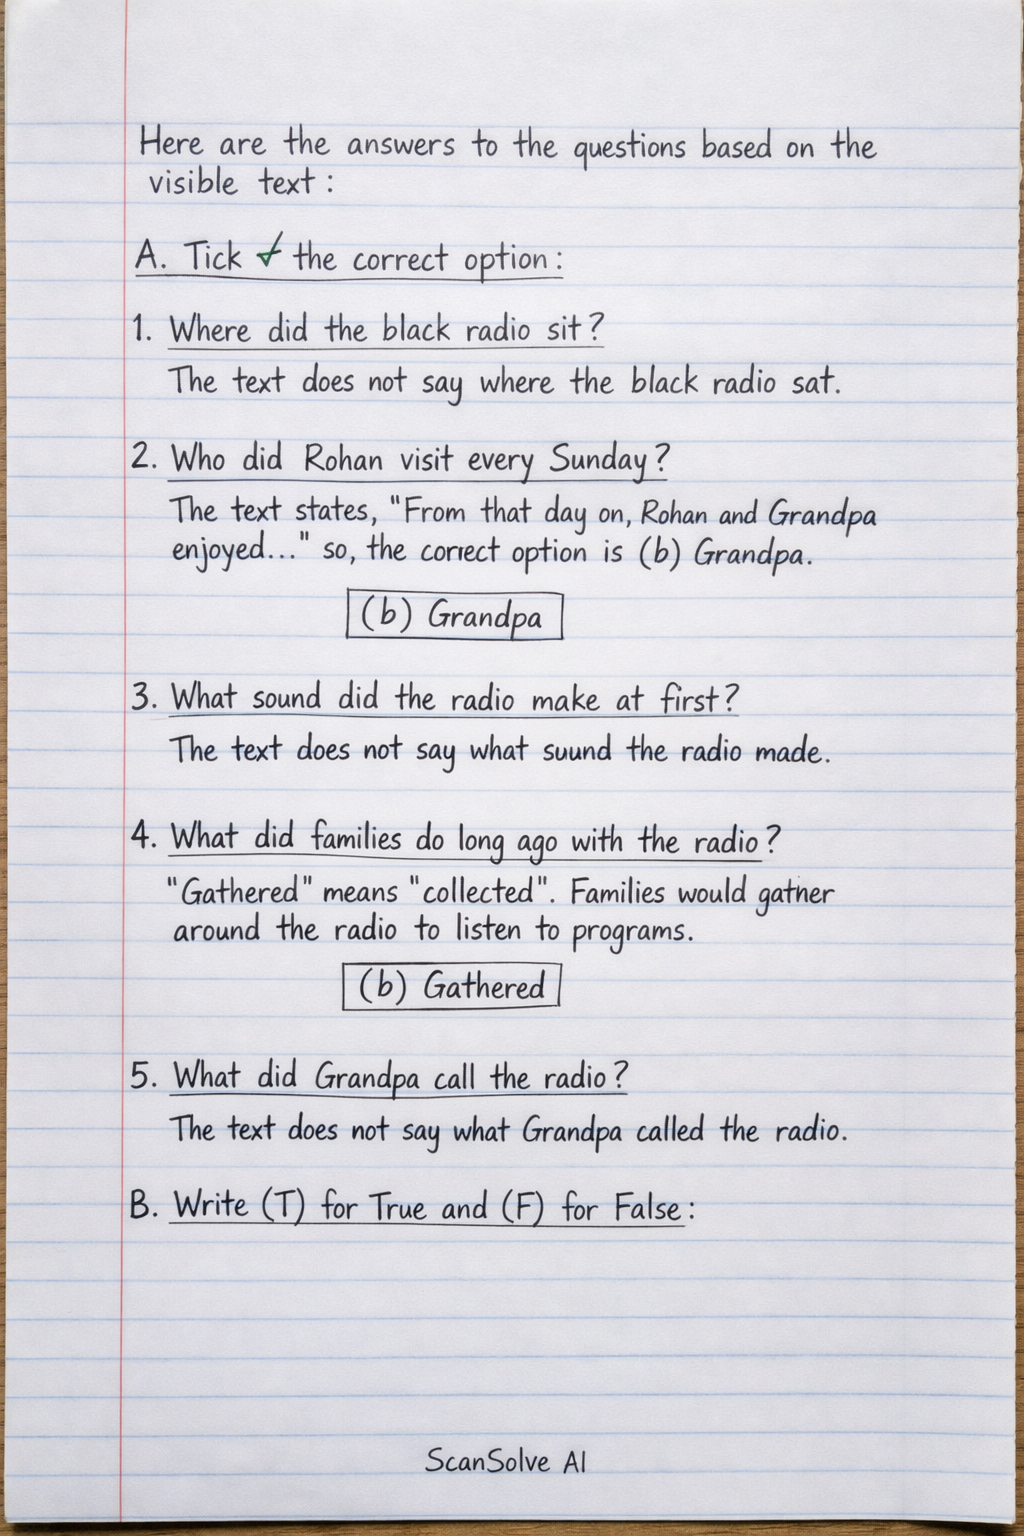 Here are the answers to the questions based on the
visible text:
A. Tick ✓ the correct option:
1. Where did the black radio sit?
The text does not say where the black radio sat.
2. Who did Rohan visit every Sunday?
The text states, "From that day on, Rohan and Grandpa
enjoyed..." so, the correct option is (b) Grandpa.
(b) Grandpa
3. What sound did the radio make at first?
The text does not say what suund the radio made.
4. What did families do long ago with the radio?
"Gathered" means "collected". Families would gather
around the radio to listen to programs.
(b) Gathered
5. What did Grandpa call the radio?
The text does not say what Grandpa called the radio.
B. Write (T) for True and (F) for False:
ScanSolve AI